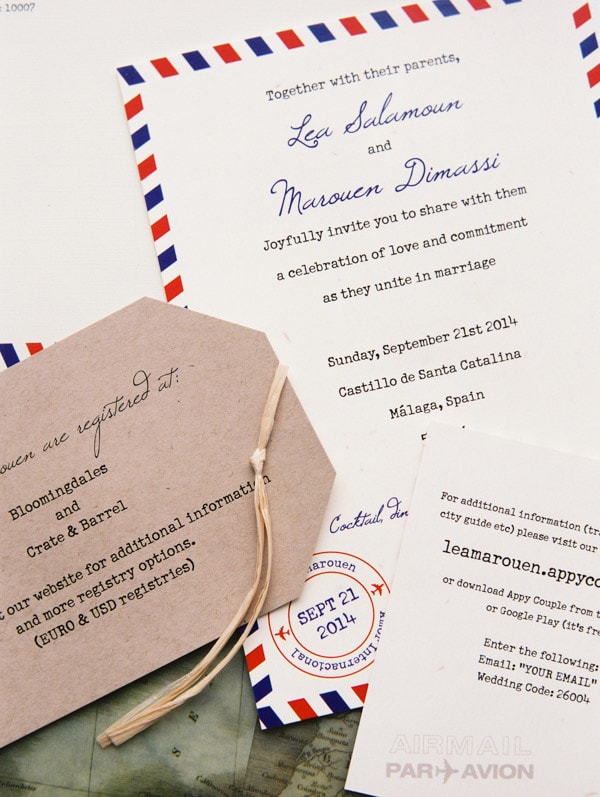 10007
Together with their parents,
Lea Salamoun
and
Marouen Dimassi
Joyfully invite you to share with them
a celebration of love and commitment
as they unite in marriage
Sunday, September 21st 2014
Castillo de Santa Catalina
Málaga, Spain
Cocktail,
arouen
SEPT 21
2014
Amor Internacional
ouen are registered at:
Bloomingdales
and
Crate & Barrel
our website for additional information
and more registry options.
(EURO & USD registries)
For additional information (tra
city guide etc) please visit our
leamarouen.appyco
or download Appy Couple from t
or Google Play (it's fre
Enter the following:
Email: "YOUR EMAIL"
Wedding Code: 26004
AIRMAIL
PAR AVION